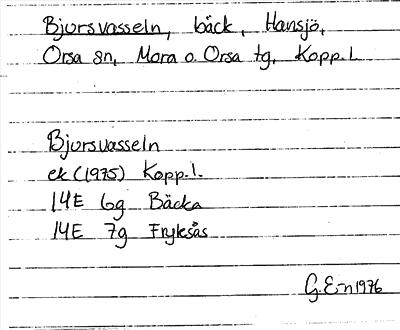 Bjursvasseln, bäck, Hansjö,
Orsa sn, Mora o. Orsa tg, Kopp.l.
Bjursvasseln
ek (1975) Kopp.l.
14E 6g Bäcka
14E 7g Fryksås
G.E-n 1976